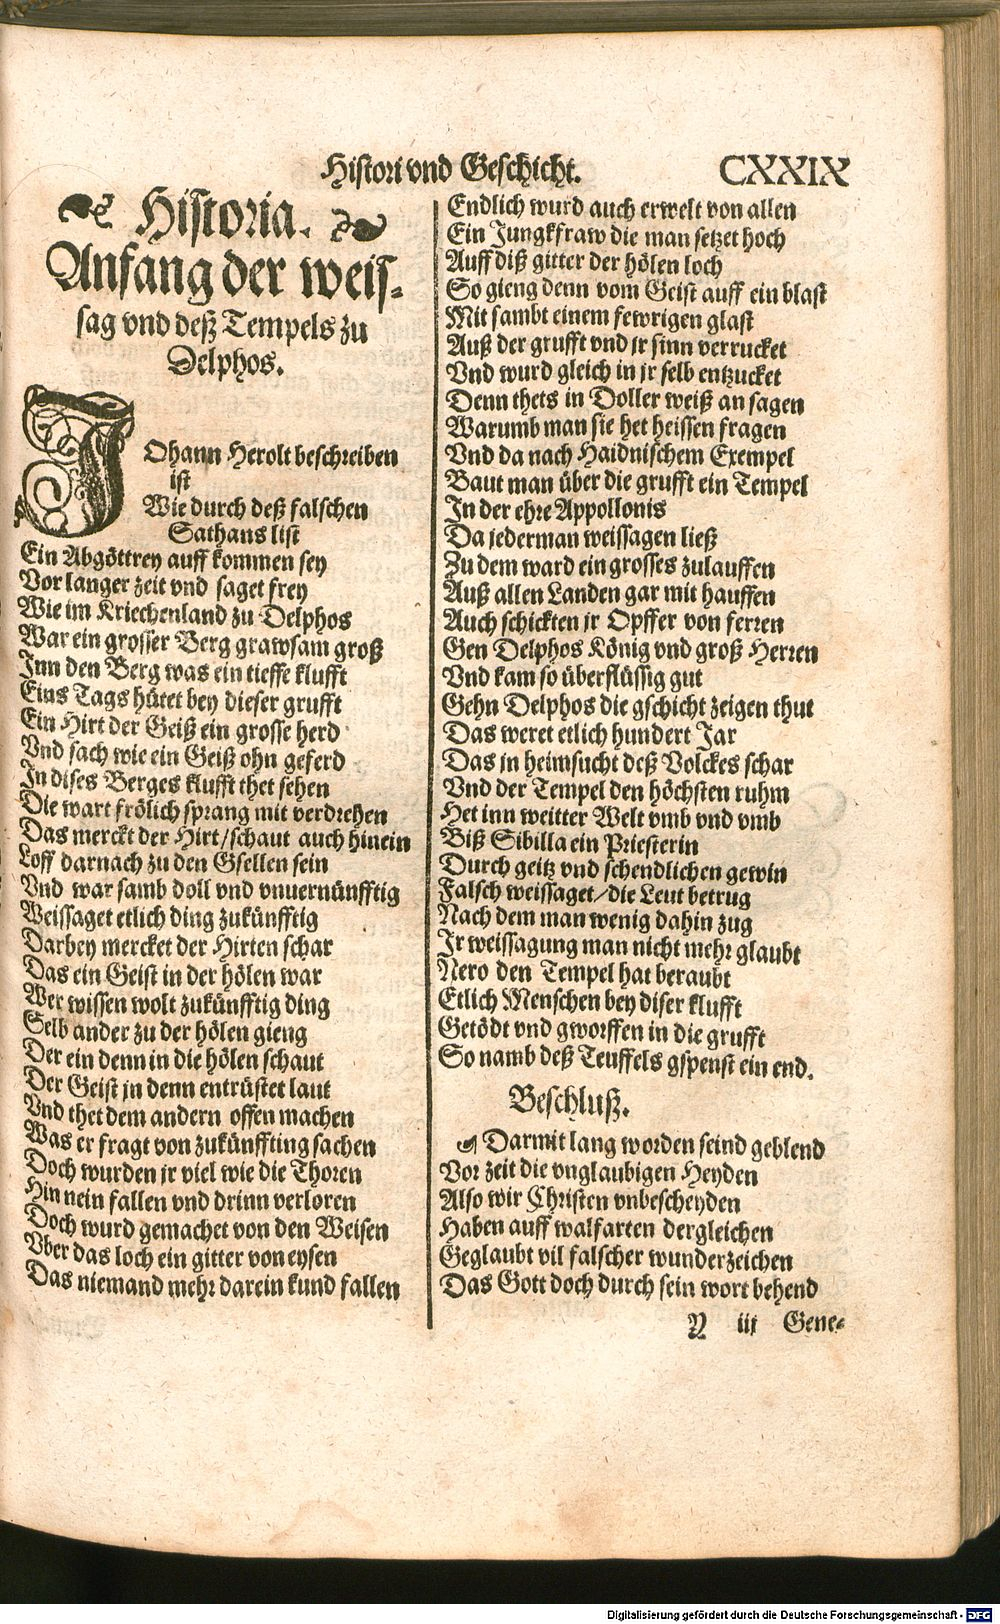 Histori vnd Geschicht. CXXIX
Historia.
Anfang der weis-
sag vnd deß Tempels zu
Delphos.
JOhann Herolt beschreiben
ist
Wie durch deß falschen
Sathans list
Ein Abgöttrey auff kommen sey
Vor langer zeit vnd saget frey
Wie im Kriechenland zu Delphos
War ein grosser Berg grawsam groß
Inn den Berg was ein tieffe klufft
Eins Tags hütet bey dieser grufft
Ein Hirt der Geiß ein grosse herd
Vnd sach wie ein Geiß ohn geferd
In dises Berges klufft thet sehen
Die wart frölich sprang mit verdrehen
Das merckt der Hirt/schaut auch hinein
Loff darnach zu den Gsellen sein
Vnd war samb doll vnd vnuernünfftig
Weissaget etlich ding zukünfftig
Darbey mercket der Hirten schar
Das ein Geist in der hölen war
Wer wissen wolt zukünfftig ding
Selb ander zu der hölen gieng
Der ein denn in die hölen schaut
Der Geist jn denn entrüstet laut
Vnd thet dem andern offen machen
Was er fragt von zukünffting sachen
Doch wurden jr viel wie die Thoren
Hin nein fallen vnd drinn verloren
Doch wurd gemachet von den Weisen
Vber das loch ein gitter von eysen
Das niemand mehr darein kund fallen
Endlich wurd auch erwelt von allen
Ein Jungkfraw die man setzet hoch
Auff diß gitter der hölen loch
So gieng denn vom Geist auff ein blast
Mit sambt einem fewrigen glast
Auß der grufft vnd jr sinn verrucket
Vnd wurd gleich in jr selb entzucket
Denn thets in Doller weiß an sagen
Warumb man sie het heissen fragen
Vnd da nach Haidnischem Exempel
Baut man über die grufft ein Tempel
In der ehre Appollonis
Da jederman weissagen ließ
Zu dem ward ein grosses zulauffen
Auß allen Landen gar mit hauffen
Auch schickten jr Opffer von ferren
Gen Delphos König vnd groß Herren
Vnd kam so überflüssig gut
Gehn Delphos die gschicht zeigen thut
Das weret etlich hundert Jar
Das jn heimsucht deß Volckes schar
Vnd der Tempel den höchsten ruhm
Het inn weitter Welt vmb vnd vmb
Biß Sibilla ein Priesterin
Durch geitz vnd schendlichen gewin
Falsch weissaget/die Leut betrug
Nach dem man wenig dahin zug
Ir weissagung man nicht mehr glaubt
Nero den Tempel hat beraubt
Etlich Menschen bey diser klufft
Getödt vnd gworffen in die grufft
So namb deß Teuffels gspenst ein end.
Beschluß.
Darmit lang worden seind geblend
Vor zeit die vnglaubigen Heyden
Also wir Christen vnbescheyden
Haben auff walfarten dergleichen
Geglaubt vil falscher wunderzeichen
Das Gott doch durch sein wort behend
Y iij Gene-
Digitalisierung gefördert durch die Deutsche Forschungsgemeinschaft - DFG